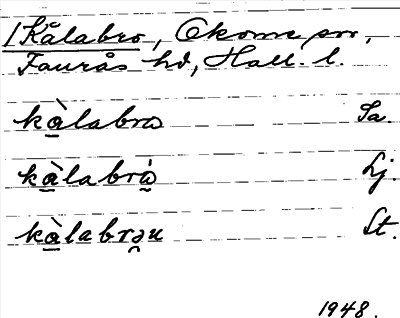 /Kålabro, Okome sn,
Faurås hd, Hall. l.
kàlabrɷ Sa.
kàlabrɷ̀ Lj.
kàlabrəu St.
1948.